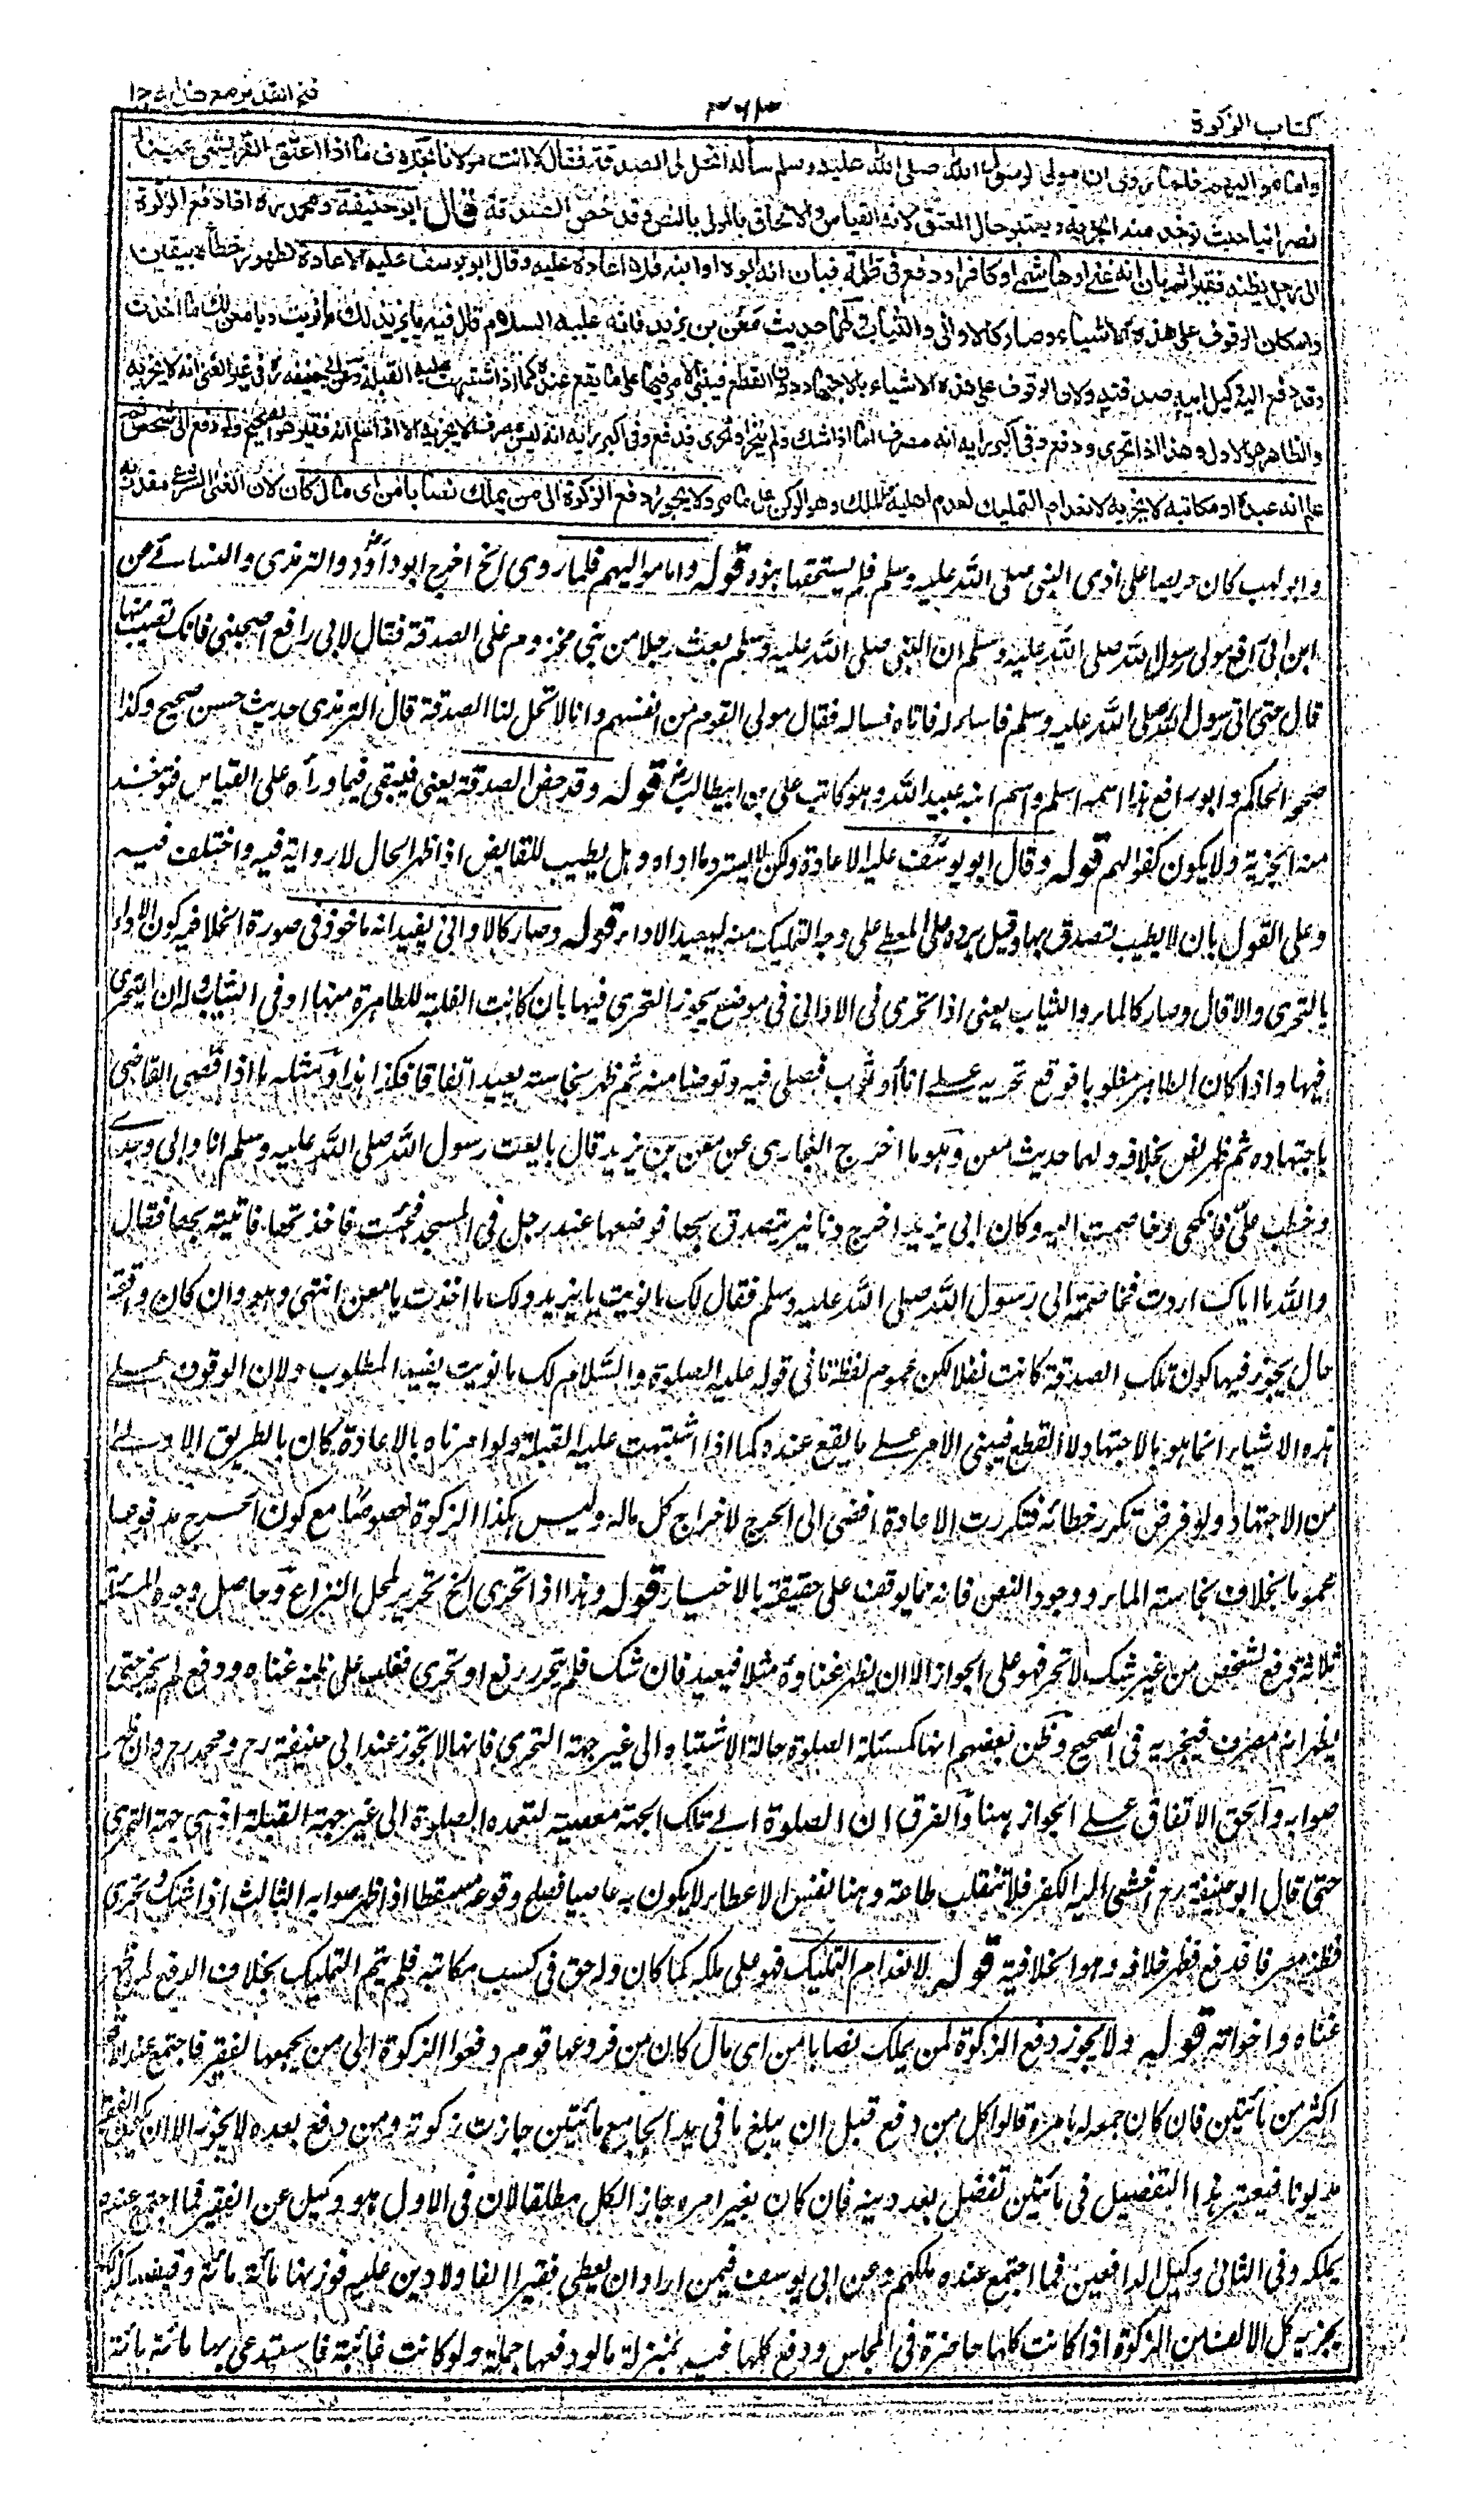 كتاب الزكوة
فتح القدير مع هدايه ج١
واما مواليهم فلما روى ان مولى لرسول الله صلى الله عليه وسلم سأله اتحل لى الصدقة فقال لا انت مولانا بخلاف ما اذا اعتق القريشى عبدا
نصرانيا حيث توخذ منه الجزية ويعتبر حال المعتق لانه القياس والالحاق بالمولى بالنص وقد خص الصدقة قال ابو حنيفة ومحمد ره اذا دفع الزكوة
الى رجل يظنه فقيرا ثم بان انه غنى او هاشمى او كافر او دفع فى ظلمة فبان انه ابوه او ابنه فلا اعادة عليه وقال ابو يوسف عليه الاعادة لظهور خطأه بيقين
وامكان الوقوف على هذه الاشياء وصار كالاوانى والثياب ولهما حديث معن بن يزيد فانه عليه السلام قال فيه يا يزيد لك ما نويت ويا معن لك ما اخذت
وقد دفع اليه وكيل ابيه صدقته ولان الوقوف على هذه الاشياء بالاجتهاد دون القطع فيبنى الامر فيها على ما يقع عنده كما اذا اشتبهت عليه القبلة وعن ابى حنيفه ره فى غير الغنى انه لا يجزيه
والظاهر هو الاول وهذا اذا تحرى ودفع وفى اكبر رايه انه مصرف اما اذا شك ولم يتحر او تحرى فدفع وفى اكبر رايه انه ليس بمصرف لا يجزيه الا اذا علم انه فقير هو الصحيح ولو دفع الى شخص ثم
علم انه عبده او مكاتبه لا يجزيه لانعدام التمليك لعدم اهلية الملك وهو الركن على ما مر ولا يجوز دفع الزكوة الى من يملك نصابا من اى مال كان لان الغنى الشرعى مقدر به
وابو لهب كان حريصا على اذى النبى صلى الله عليه وسلم فلم يستحقها بنوه قوله واما مواليهم فلما روى الخ اخرج ابو داؤد والترمذى والنسائے عن
ابن ابى رافع مولى رسول الله صلى الله عليه وسلم ان النبى صلى الله عليه وسلم بعث رجلا من بنى مخزوم على الصدقة فقال لابى رافع اصحبنى فانك تصيب منها
قال حتى اتى رسول الله صلى الله عليه وسلم فاسئله فاتاه فساله فقال مولى القوم من انفسهم وانا لا تحل لنا الصدقة قال الترمذى حديث حسن صحيح وكذا
صححه الحاكم وابو رافع هذا اسمه اسلم واسم ابنه عبيد الله وهو كاتب على بن ابيطالب رض قوله وقد خص الصدقة يعنى فيبقى فيما وراه على القياس فتوخذ
منه الجزية ولا يكون كفوا لهم قوله وقال ابو يوسف عليه الاعادة ولكن لا يسترد ما اداه وهل يطيب للقابض اذا ظهر الحال لا رواية فيه واختلف فيه
وعلى القول بان لا يطيب تصدق بها وقيل يرده على المعطے على وجه التمليك منه ليعيد الاداء قوله وصار كالاوانى يفيد انه ماخوذ فى صورة الخلافية كون الاداء
بالتحرى والا قال وصار كالماء والثياب يعنى اذا تحرى فى الاوانى فى موضع يجوز التحرى فيها بان كانت الغلبة للطاهرة منها او فى الثياب وله ان يتحرى
فيها واذا كان الطاهر مغلوبا فوقع تحريه علے اناء او ثوب فصلى فيه وتوضا منه ثم ظهر نجاسته يعيد اتفاقا فكذا هذا ومثله ما اذا قضى القاضى
باجتهاده ثم ظهر نص بخلافه ولهما حديث معن وهو ما اخرج البخارى عن معن بن يزيد قال بايعت رسول الله صلى الله عليه وسلم انا وابى وجدے
وخطب علىّ فانكحنى وخاصمت اليه وكان ابى يزيد اخرج دنانير يتصدق بها فوضعها عند رجل فى المسجد فجئت فاخذتها فاتيته بها فقال
والله ما اياك اردت فخاصمته الى رسول الله صلى الله عليه وسلم فقال لك ما نويت يا يزيد ولك ما اخذت يا معن انتهى وهو وان كان واقعة
حال يجوز فيها كون تلك الصدقة كانت نفلا لكن عموم لفظة ما فى قوله عليه الصلوة والسلام لك ما نويت يفيد المطلوب ولان الوقوف علے
هذه الاشياء انما هو بالاجتهاد لا القطع فيبنى الامر علے ما يقع عنده كما اذا اشتبهت عليه القبلة ولو امرناه بالاعادة كان بالطريق الاولے
من الاجتهاد ولو فرض تكرر خطائه فتكررت الاعادة افضى الى الحرج لاخراج كل ماله وليس هكذا الزكوة خصوصا مع كون الحرج مدفوعا
عموما بخلاف نجاسة الماء ووجود النص فانه مما يوقف على حقيقته بالاخبار قوله وهذا اذا تحرى الخ تحرير لمحل النزاع وحاصل وجوه المسئلة
ثلاثة دفع لشخص من غير شك ولا تحر فهو على الجواز الا ان يظهر غناؤه مثلا فيعيد فان شك فلم يتحر ودفع او تحرى فغلب على ظنه غناه ودفع لم يجز حتى
يظهر انه مصرف فيجزيه فى الصحيح وظن بعضهم انها كمسئلة الصلوة حالة الاشتباه الى غير جهة التحرى فانها لا تجوز عند ابى حنيفة رح ومحمد رح وان ظهر
صوابه والحق الاتفاق علے الجواز هنا والفرق ان الصلوة الے تلك الجهة معصية لتعمده الصلوة الى غير جهة القبلة اذ هى جهة التحرى
حتى قال ابو حنيفة رح اخشى اليه الكفر فلا تنقلب طاعة وهنا نفس الاعطاء لا يكون به عاصيا فصلح وقوعه مسقطا اذا ظهر صوابه الثالث اذا شك وتحرى
فظنه مصرفا فدفع فظهر خلافه وهو الخلافية قوله لانعدام التمليك فهو على ملكه كما كان وله حق فى كسب مكاتبه فلم يتم التمليك بخلاف الدفع لمن ظهر
غناه واخواته قوله ولا يجوز دفع الزكوة لمن يملك نصابا من اى مال كان من فروعها قوم دفعوا الزكوة الى من يجمعها لفقير فاجتمع عند الآخذ
اكثر من مائتين فان كان جمعه له بامره قالوا كل من دفع قبل ان يبلغ ما فى يد الجابى مائتين جازت زكوته ومن دفع بعده لا يجوز الا ان يكون الفقير
مديونا فيعتبر هذا التفصيل فى مائتين تفضل بعد دينه فان كان بغير امره جاز الكل مطلقا لان فى الاول هو وكيل عن الفقير فما اجتمع عنده
يملكه وفى الثانى وكيل الدافعين فما اجتمع عنده ملكهم وعن ابى يوسف فيمن اراد ان يعطى فقيرا الفا ولا دين عليه فوزنها مائة مائة وقبضها كذلك
يجزيه كل الالف من الزكوة اذا كانت كلها حاضرة فى المجلس ودفع كلها فيه بمنزلة ما لو دفعها جملة ولو كانت غائبة فاستدعى بها مائة مائة